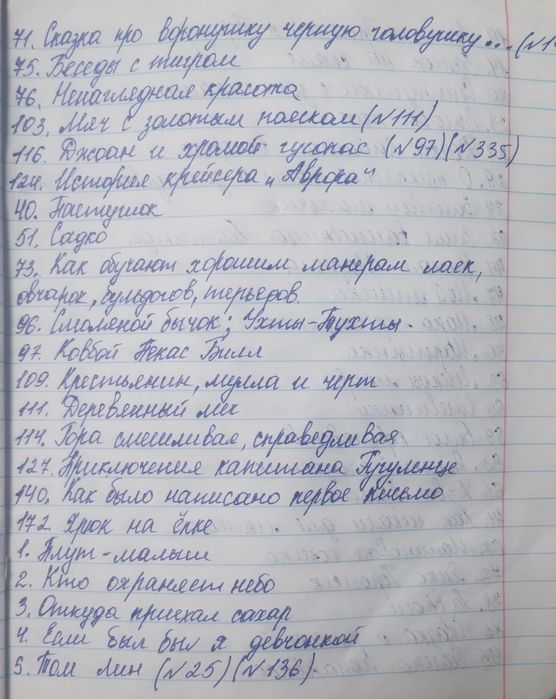 71. Сказка про воронушку черную головушку... (N1
75. Беседы с тигром
76. Ненаглядная красота
103. Мяч с золотым пояском (N111)
116. Джоан и хромой гусопас (N97) (N335)
124. История крейсера „Аврора"
40. Пастушок
51. Садко
73. Как обучают хорошим манерам ласк,
овчарок, бульдогов, терьеров.
96. Смоляной бычок; Ухты-Тухты.
97. Ковбой Пекас Билл
109. Крестьянин, мулла и черт
111. Деревянный меч
114. Гора смешливая, справедливая
127. Приключения капитана
140. Как было написано первое письмо
172. Хрюк на ёлке
1. Плут-малыш
2. Кто охраняет небо
3. Откуда приехал сахар
4. Если был был я девчонкой
5. Том Лин (N25) (N136)